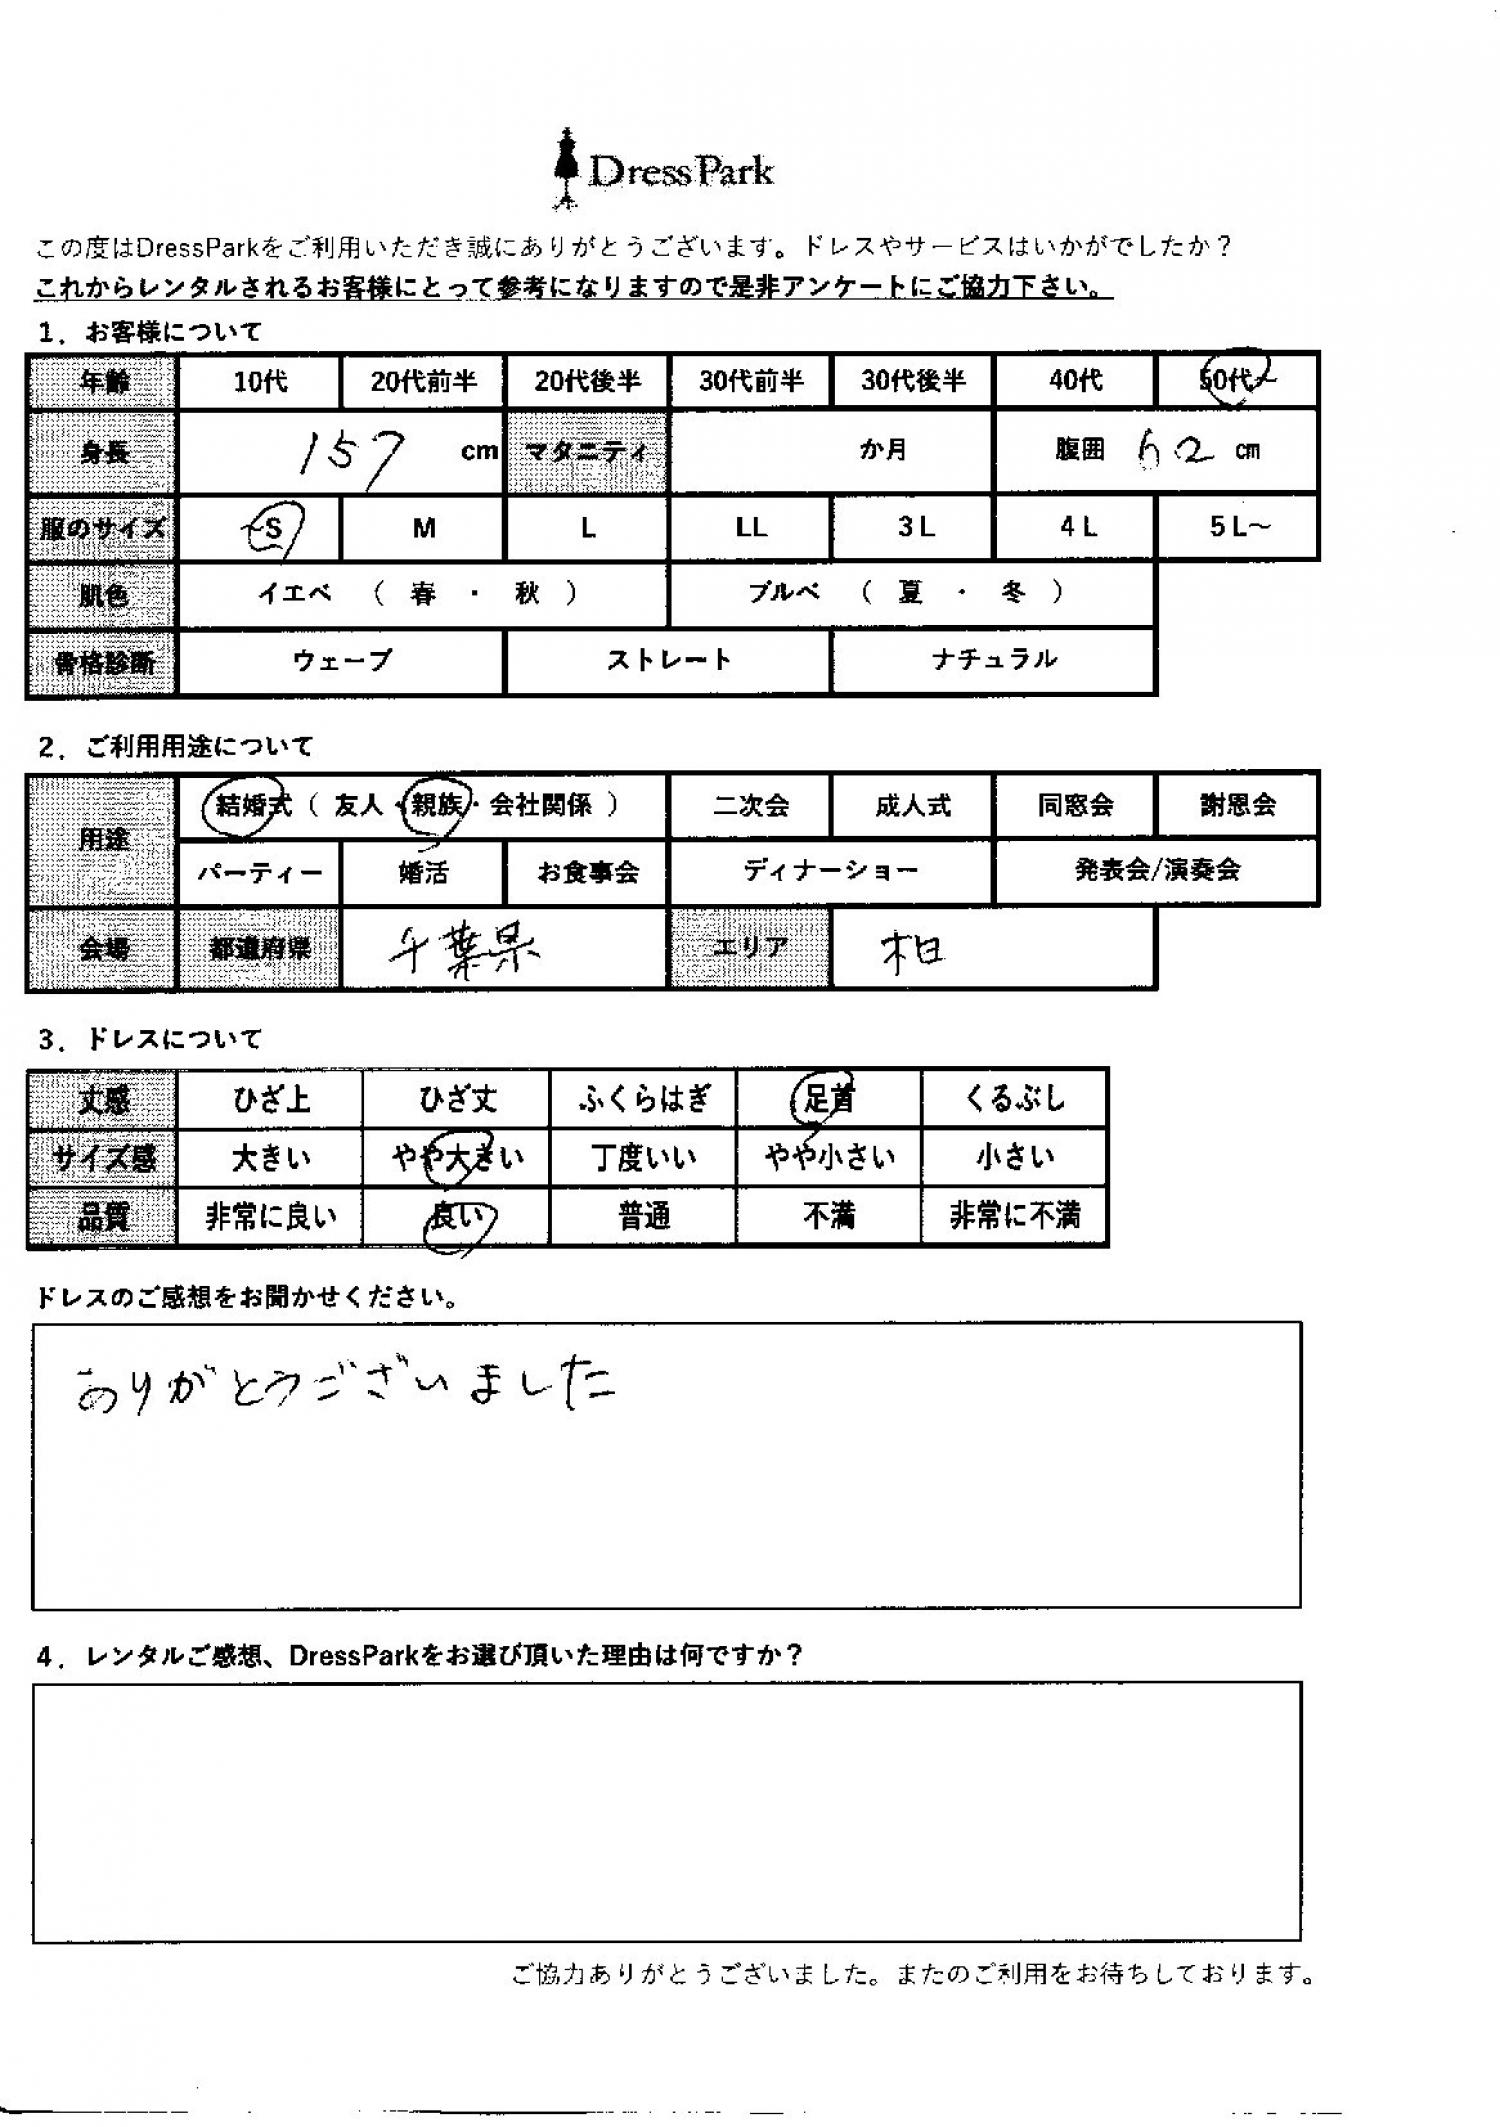 DressPark
この度はDressParkをご利用いただき誠にありがとうございます。ドレスやサービスはいかがでしたか？
これからレンタルされるお客様にとって参考になりますので是非アンケートにご協力下さい。
1．お客様について
年齢 10代 20代前半 20代後半 30代前半 30代後半 40代 50代～
身長 157 cm マタニティ か月 腹囲 62 cm
服のサイズ ～S M L LL 3L 4L 5L～
肌色 イエベ （ 春 ・ 秋 ） ブルベ （ 夏 ・ 冬 ）
骨格診断 ウェーブ ストレート ナチュラル
2．ご利用用途について
用途 結婚式（ 友人・親族・会社関係 ） 二次会 成人式 同窓会 謝恩会
パーティー 婚活 お食事会 ディナーショー 発表会/演奏会
会場 都道府県 千葉県 エリア 柏
3．ドレスについて
丈感 ひざ上 ひざ丈 ふくらはぎ 足首 くるぶし
サイズ感 大きい やや大きい 丁度いい やや小さい 小さい
品質 非常に良い 良い 普通 不満 非常に不満
ドレスのご感想をお聞かせください。
ありがとうございました
4．レンタルご感想、DressParkをお選び頂いた理由は何ですか？
ご協力ありがとうございました。またのご利用をお待ちしております。